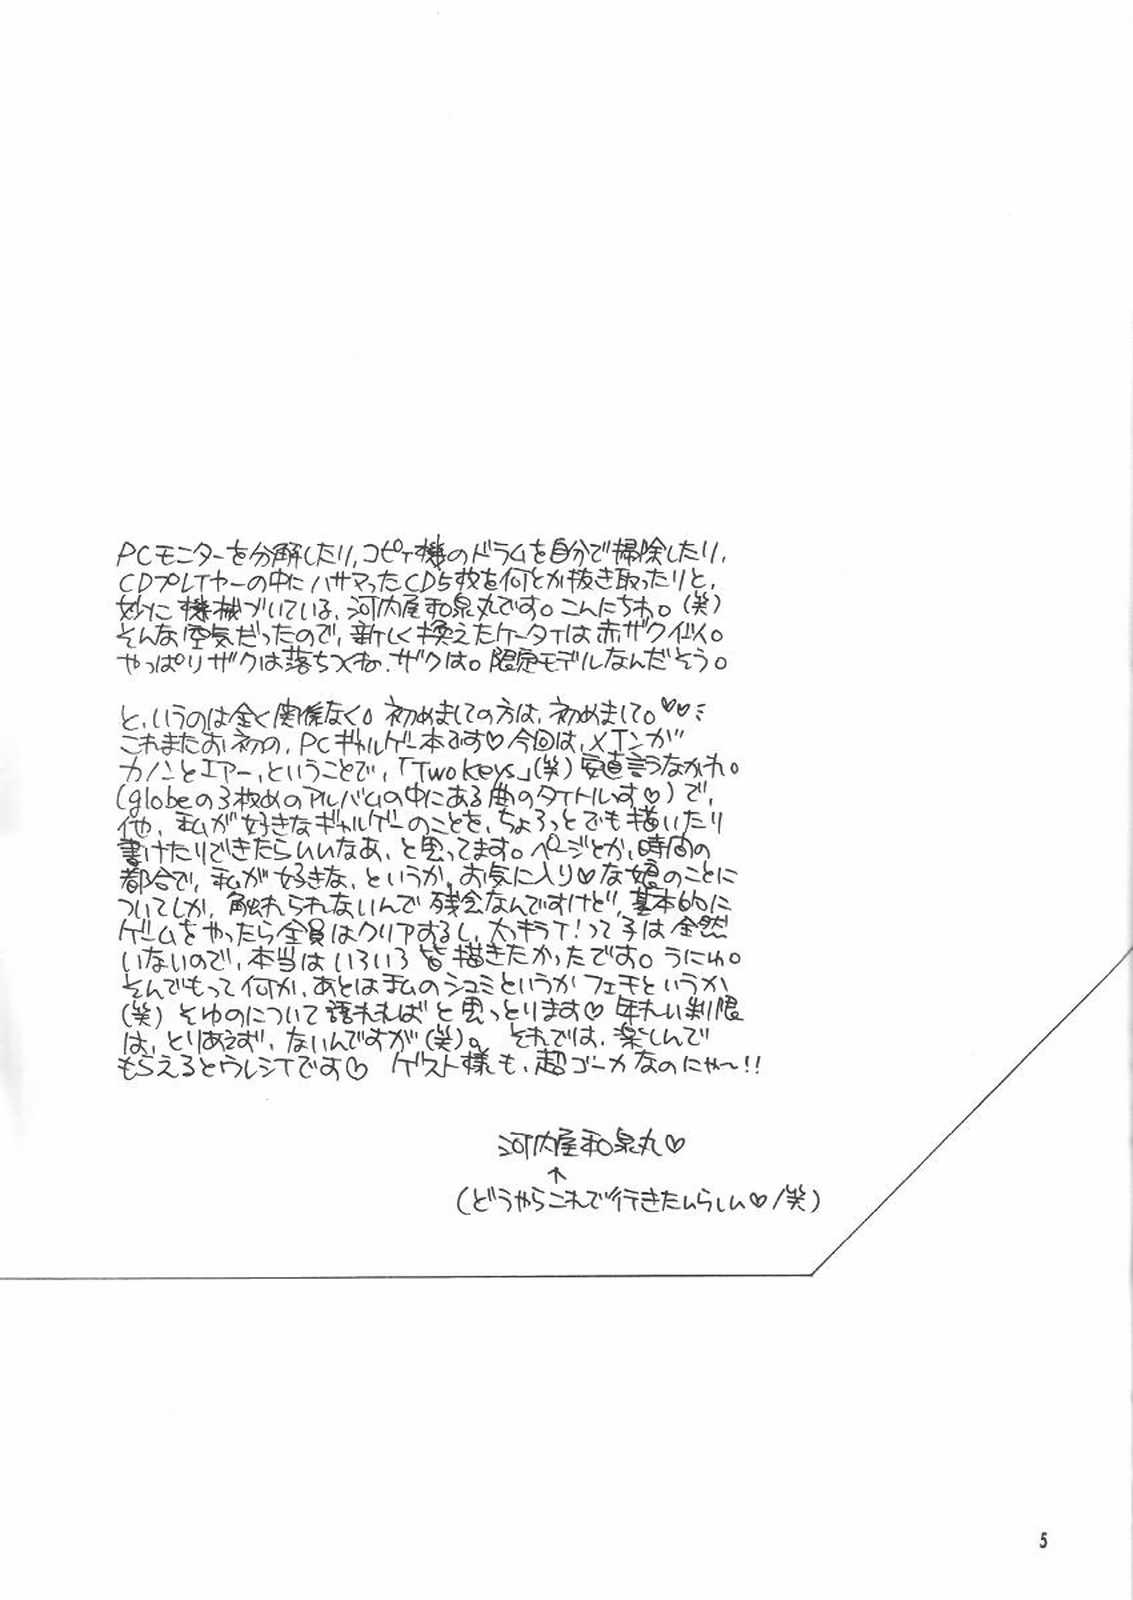 PCモニターを分解したり、コピィ機のドラムを自分で掃除したり、
CDプレイヤーの中にハサマったCD5枚を何とか抜き取ったりと、
妙に機械づいている、河内屋和泉丸です。こんにちわ。(笑)
そんな空気だったので、新しく換えたケータイは赤ザク仕様。
やっぱりザクは落ちつくね、ザクは。限定モデルなんだそう。
と、いうのは全く関係なく。初めましての方は、初めまして。♡♡
これまたお初の、PCギャルゲー本です♡今回は、メインが
カノンとエアー、ということで、「Two Keys」(笑)安直言うなかれ。
(globeの3枚めのアルバムの中にある曲のタイトルっす♡)で、
他、私が好きなギャルゲーのことを、ちょろっとでも描いたり
書けたりできたらいいなあ、と思ってます。ページとか、時間の
都合で、私が好きな、というか、お気に入り♡な娘のことに
ついてしか、触れられないんで残念なんですけど、基本的に
ゲームをやったら全員はクリアするし、大っキライ!って子は全然
いないので、本当はいろいろ皆描きたかったです。うにゅ。
そんでもって何か、あとは私のシュミというかフェチというか
(笑)そゆのについて語れればと思っとります♡年れい制限
は、とりあえず、ないんですが(笑)。それでは、楽しんで
もらえるとウレシイです♡ ゲスト様も、超ゴーカなのにゃ〜!!
河内屋和泉丸♡
↑
(どうやらこれで行きたいらしい♡/笑)
5